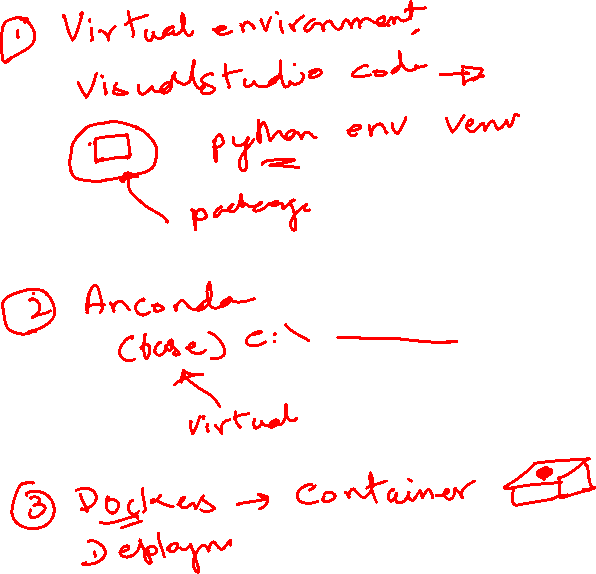 1 Virtual environment,
Visualstudio code →
python env venv
package
2 Anconda
(base) C:\
virtual
3 Dockers → Container
Deploym